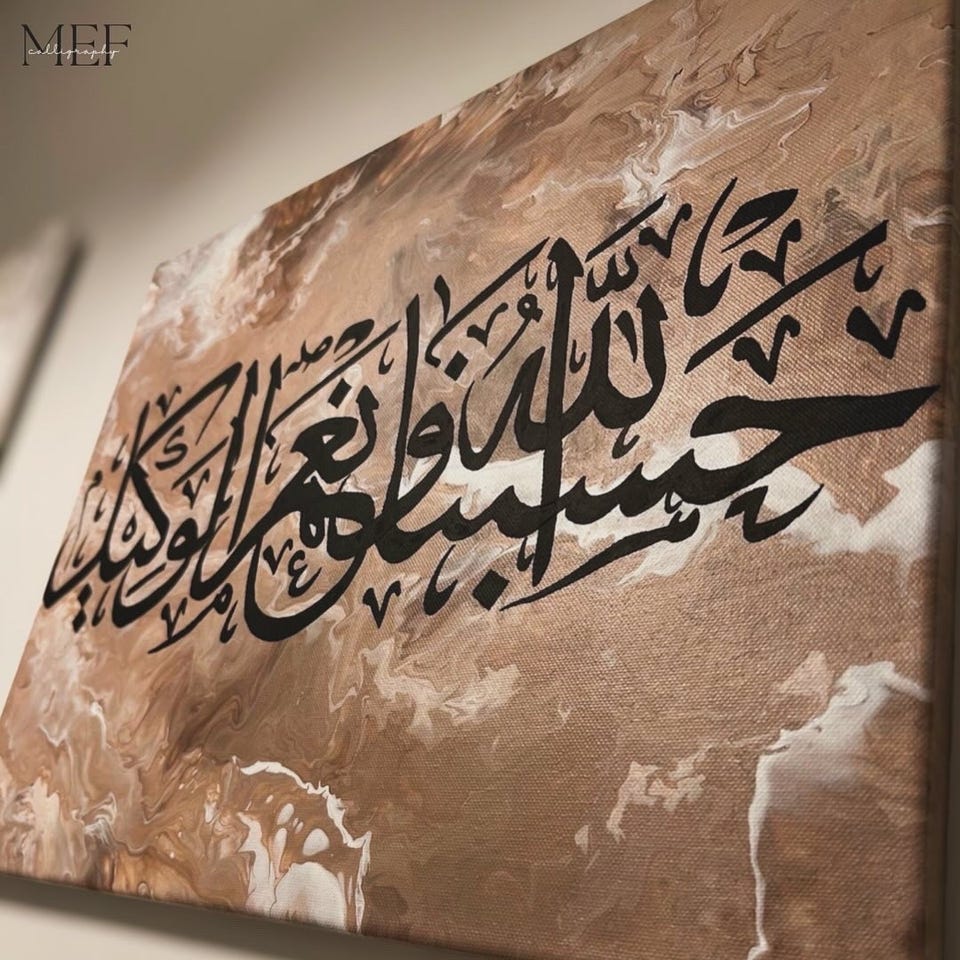 MEF
calligraphy
حسبنا الله ونعم الوكيل